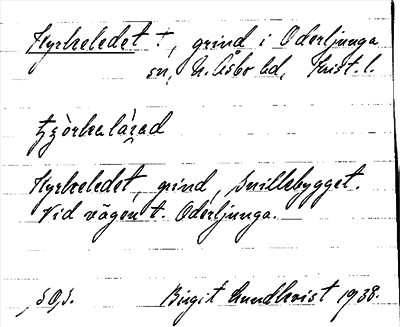 Kyrkeledet †, grind i Oderljunga
sn, N. Åsbo hd, Krist. l.
Kyrkeledet, grind, Snillebygget.
Vid vägen t. Oderljunga.
Birgit Lundkvist 1938.